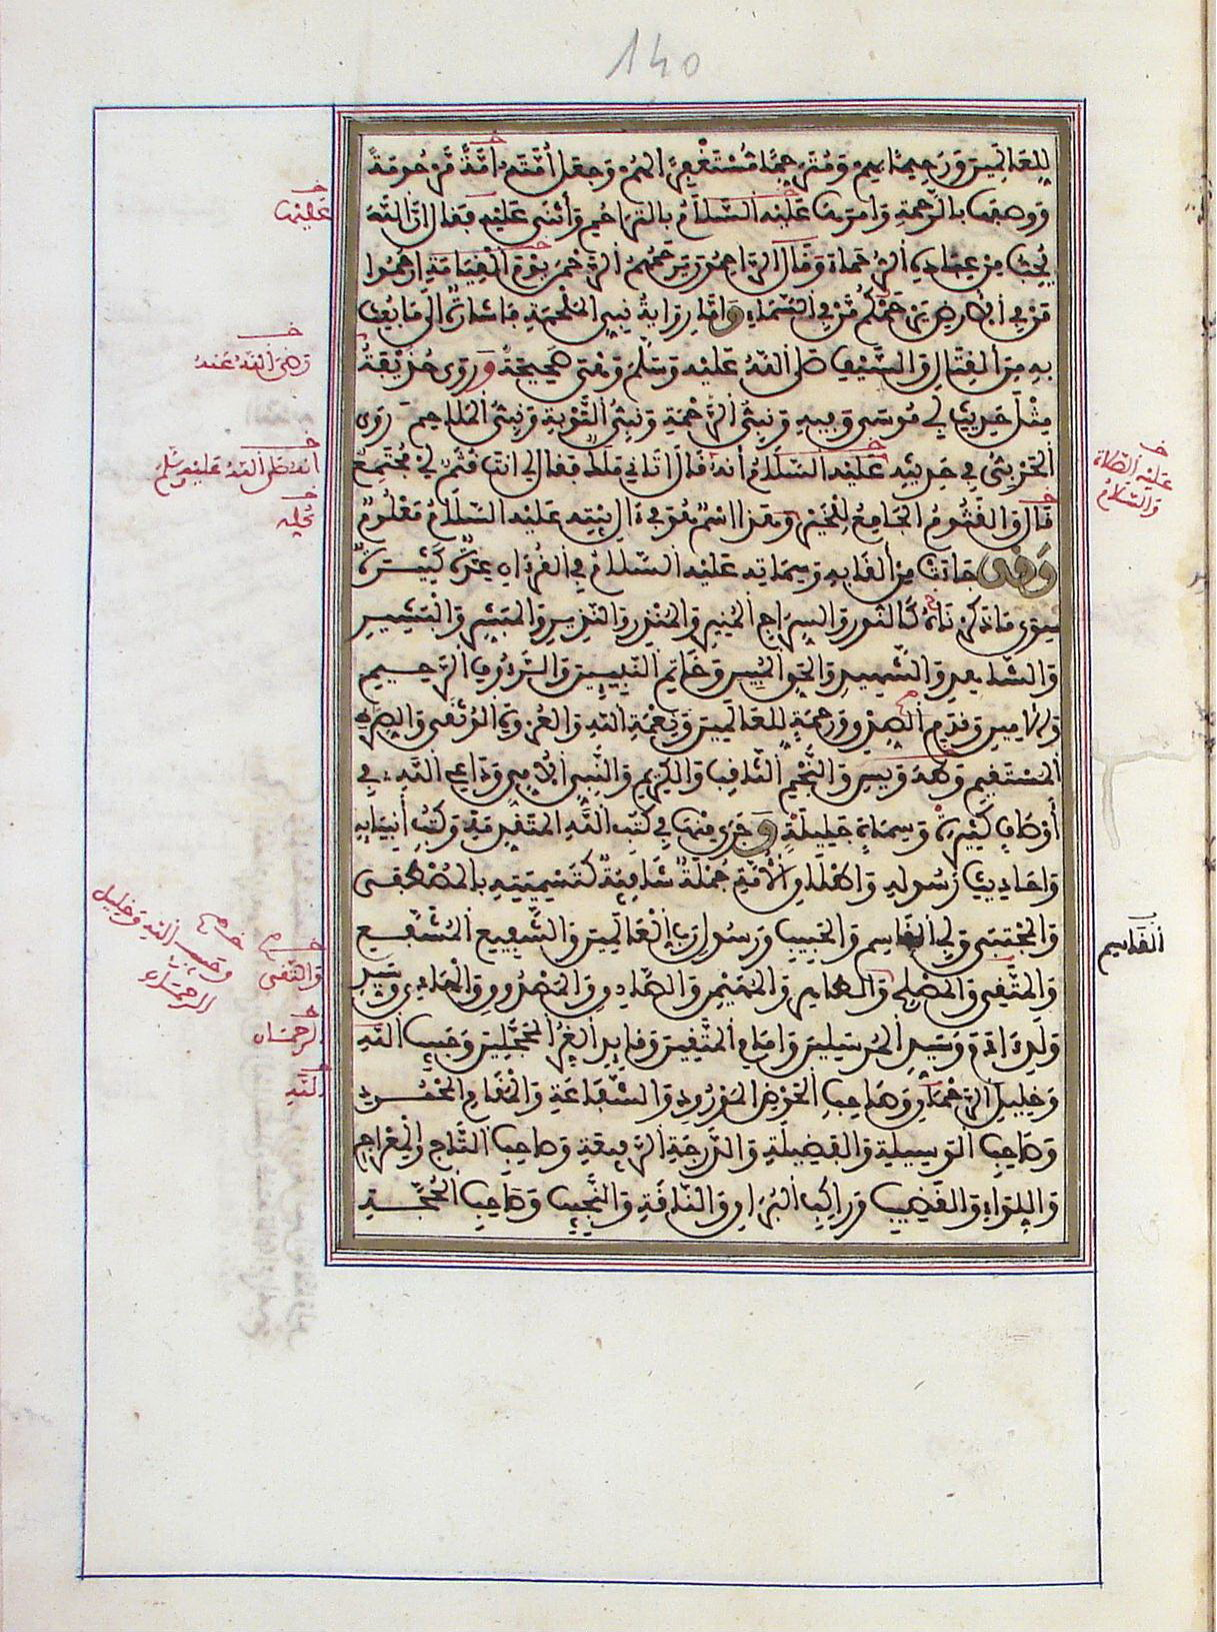 140
للعالمين ورحيما بهم ومترحما مستغفرا لهم وجعل أمته أمة مرحومة
ووصفها بالرحمة وأمرها عليه السلام بالتراحم وأثنى عليه فقال إن الله
يحب من عباده الرحماء وقال الراحمون يرحمهم الرحمن يوم القيامة ارحموا
من في الأرض يرحمكم من في السماء وأما رواية نبي الملحمة فإشارة إلى ما بعث
به من القتال والسيف صلى الله عليه وسلم وهي صحيحة وروى حذيفة
مثل حديث أبي موسى وفيه ونبي الرحمة ونبي التوبة ونبي الملاحم روى
الحربي في حديثه عليه السلام أنه قال أتاني ملك فقال لي أنت قثم أي مجتمع
قال والقثوم الجامع للخير وهذا اسم هو في آل بيته عليه السلام معلوم
وقد جاءت من ألقابه وسماته عليه السلام في القرءان عدة كثيرة
سوى ما ذكرناه كالنور والسراج المنير والمنذر والنذير والمبشر والبشير
والشاهد والشهيد والحق المبين وخاتم النبيين والرءوف الرحيم
والأمين وقدم الصدق ورحمة للعالمين ونعمة الله والعروة الوثقى والصراط
المستقيم وطه ويس والنجم الثاقب والكريم والنبي الأمي وداعي الله في
أوصاف كثيرة وسمات جليلة وجرى منها في كتب الله المتقدمة وكتب أنبيائه
وأحاديث رسوله وإطلاق الأمة جملة شافية كتسميته بالمصطفى
والمجتبى وأبي القاسم والحبيب ورسول رب العالمين والشفيع المشفع
والمتقي والمصلح والطاهر والمهيمن والصادق والمصدوق والهادي وسيد
ولد ءادم وسيد المرسلين وإمام المتقين وقائد الغر المحجلين وحبيب الله
وخليل الرحمان وصاحب الحوض المورود والشفاعة والمقام المحمود
وصاحب الوسيلة والفضيلة والدرجة الرفيعة وصاحب التاج والمعراج
واللواء والقضيب وراكب البراق والناقة والنجيب وصاحب الحجة
خ
عليها
خ
رضي الله عنه
خ
أنه صلى الله عليه وسلم
خ
عليه الصلاة
والسلام
القاسم
وحبيب الله وخليل
الرحمان
خ
والتقي
الرحمان
الله